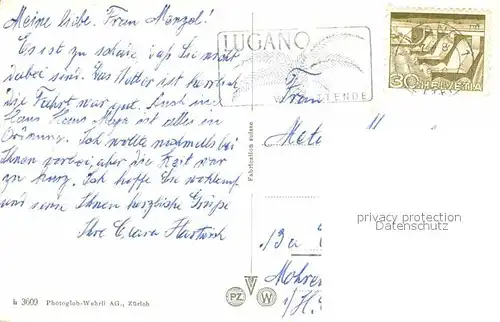 Meine liebe Frau Menzel!
Es ist zu schade daß Sie nicht
dabei sind. Das Wetter ist herrlich,
die Fahrt war gut. Auch im
Haus Meye ist alles in
Ordnung. Ich wollte nochmals bei
Ihnen vorbei, aber die Zeit war
zu kurz. Ich hoffe Sie wohlauf
und sende Ihnen herzliche Grüße
Ihre Clara Hartwich
LUGANO
TENDE
30 HELVETIA
Frau
Fabrication suisse
privacy protection
Datenschutz
Mohren
PZ W
h 3609 Photoglob-Wehrli AG., Zürich